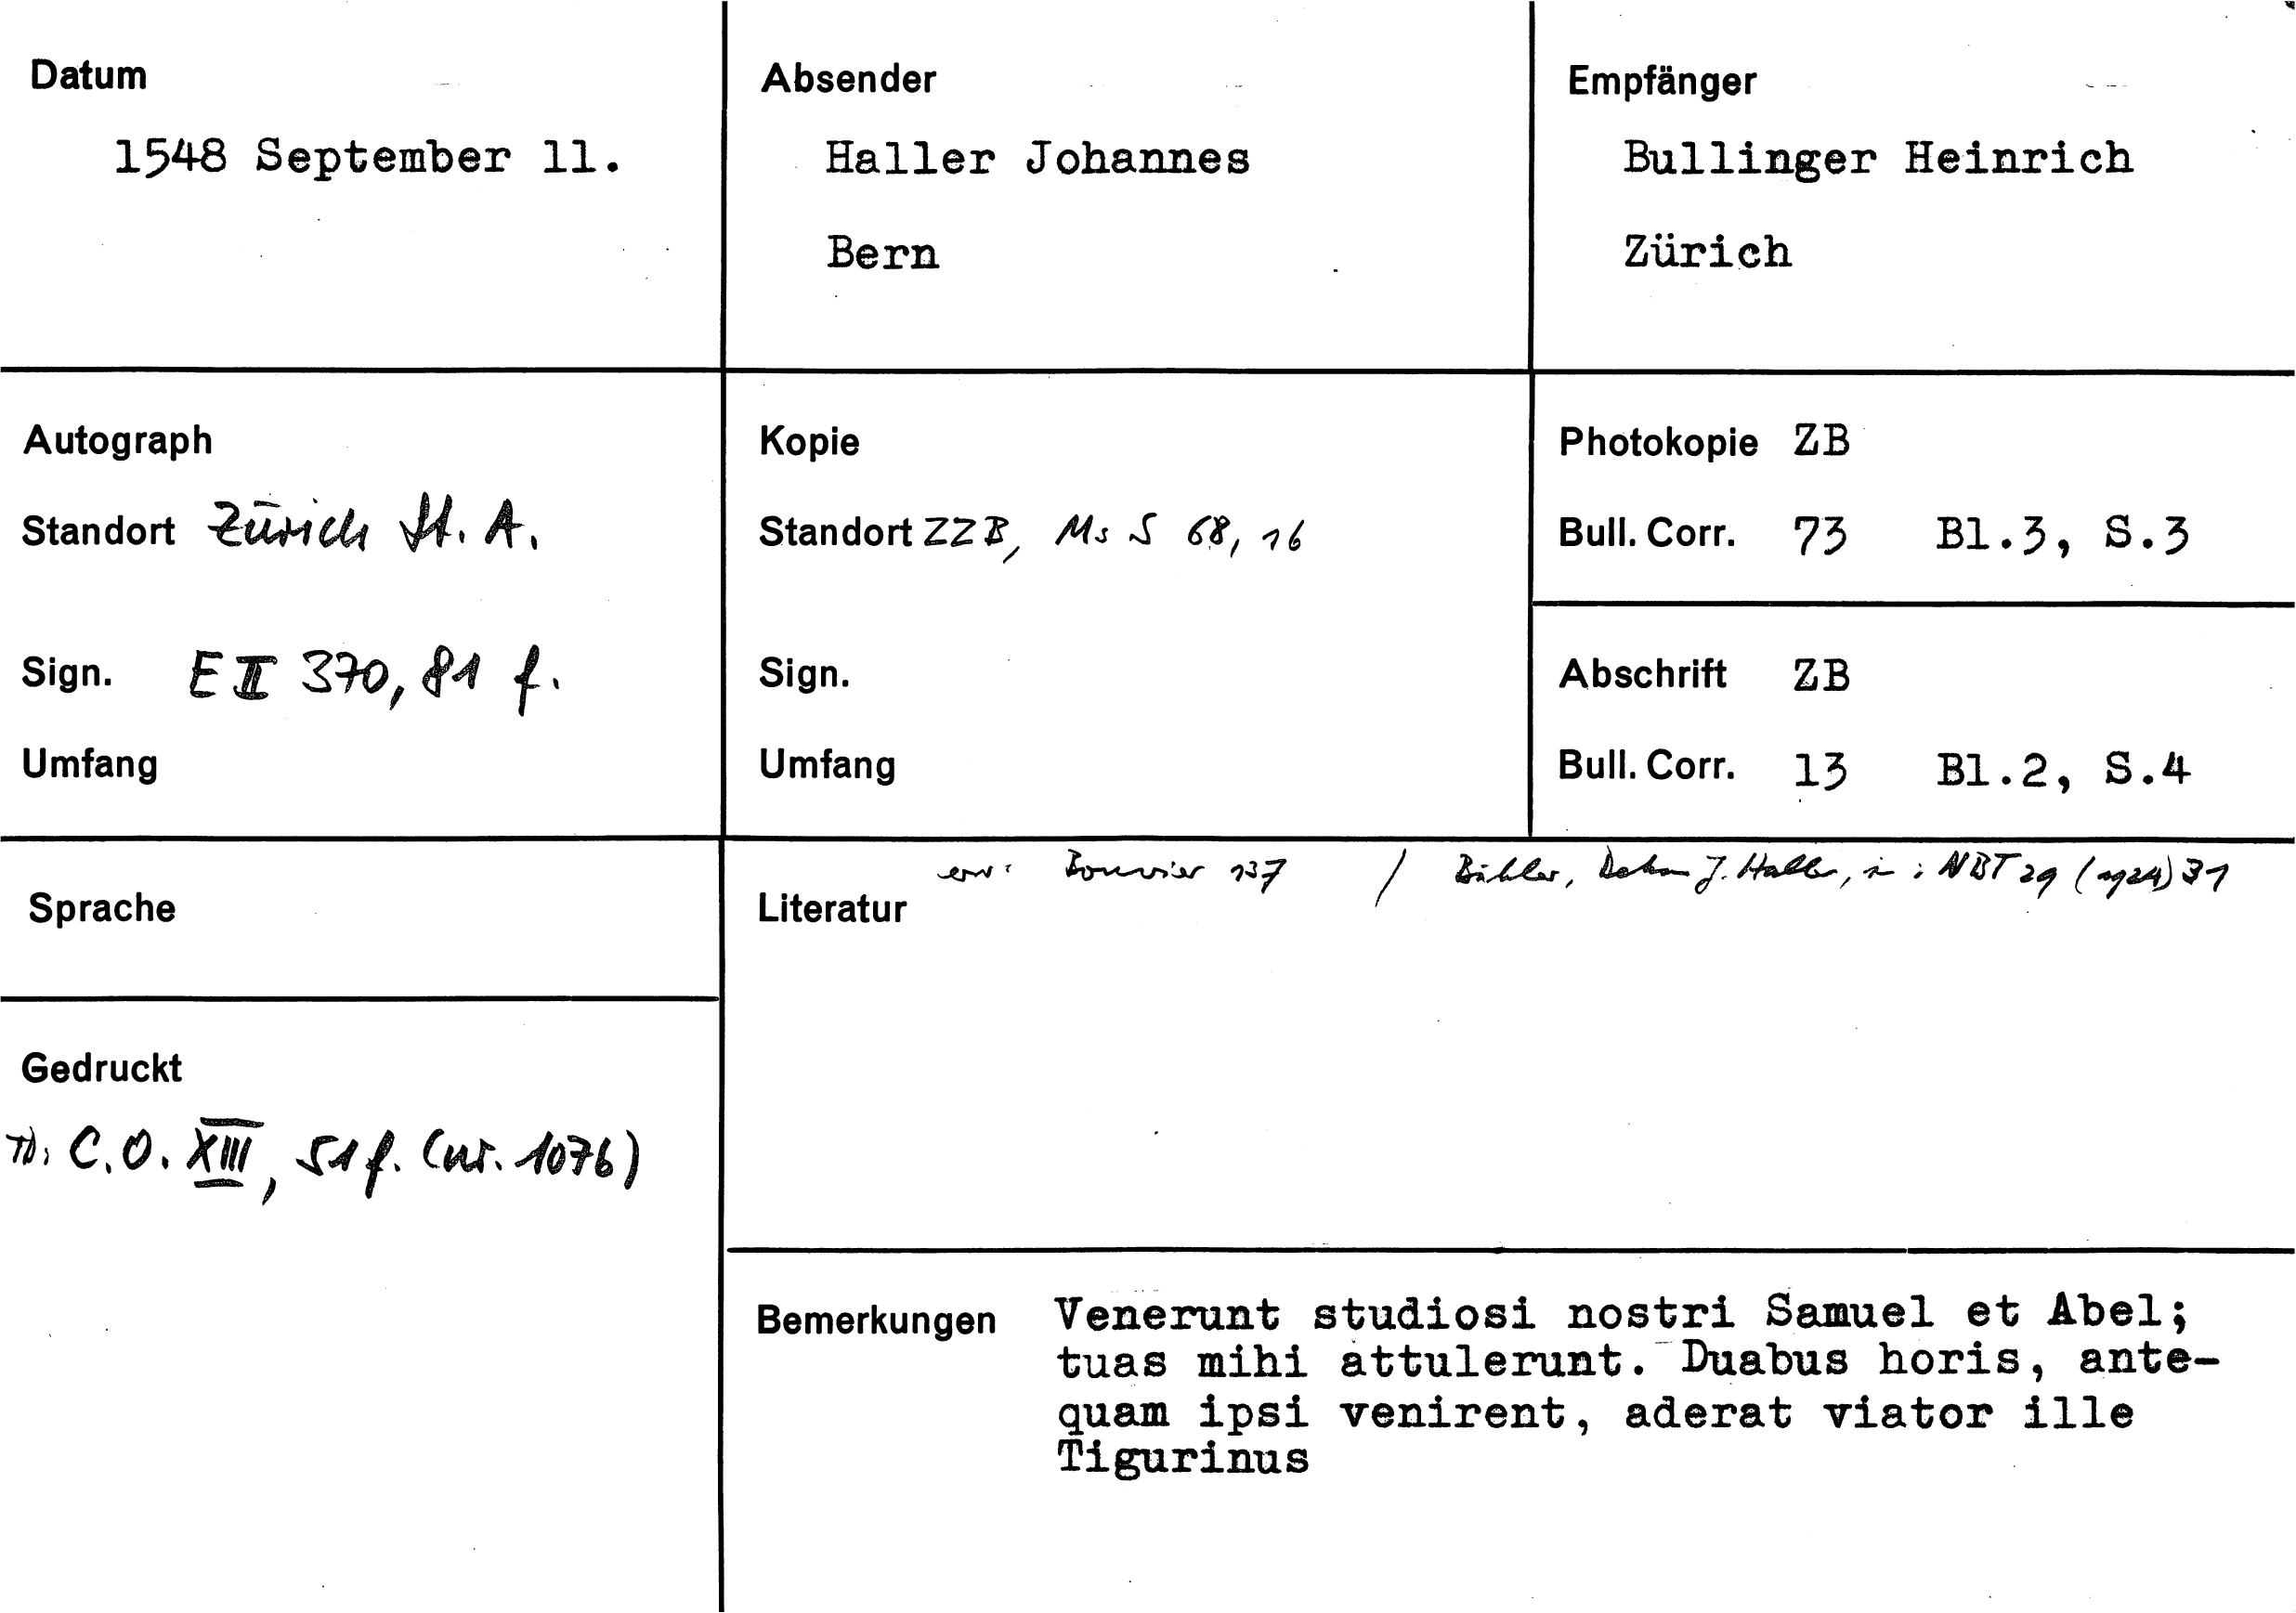 Datum
1548 September 11.
Absender
Haller Johannes
Bern
Empfänger
Bullinger Heinrich
Zürich
Autograph
Standort Zürich St. A.
Sign. E II 370, 81 f.
Umfang
Kopie
Standort ZZB, Ms S 68, 16
Sign.
Umfang
Photokopie ZB
Bull. Corr. 73 Bl.3, S.3
Abschrift ZB
Bull. Corr. 13 Bl.2, S.4
Sprache
Gedruckt
C.O. XIII, 51 f. (nr. 1076)
erw: Bouvier 137 / Bähler, Dekan J. Haller, in: NBT 29 (1924) 31
Literatur
Bemerkungen Venerunt studiosi nostri Samuel et Abel;
tuas mihi attulerunt. Duabus horis, ante-
quam ipsi venirent, aderat viator ille
Tigurinus